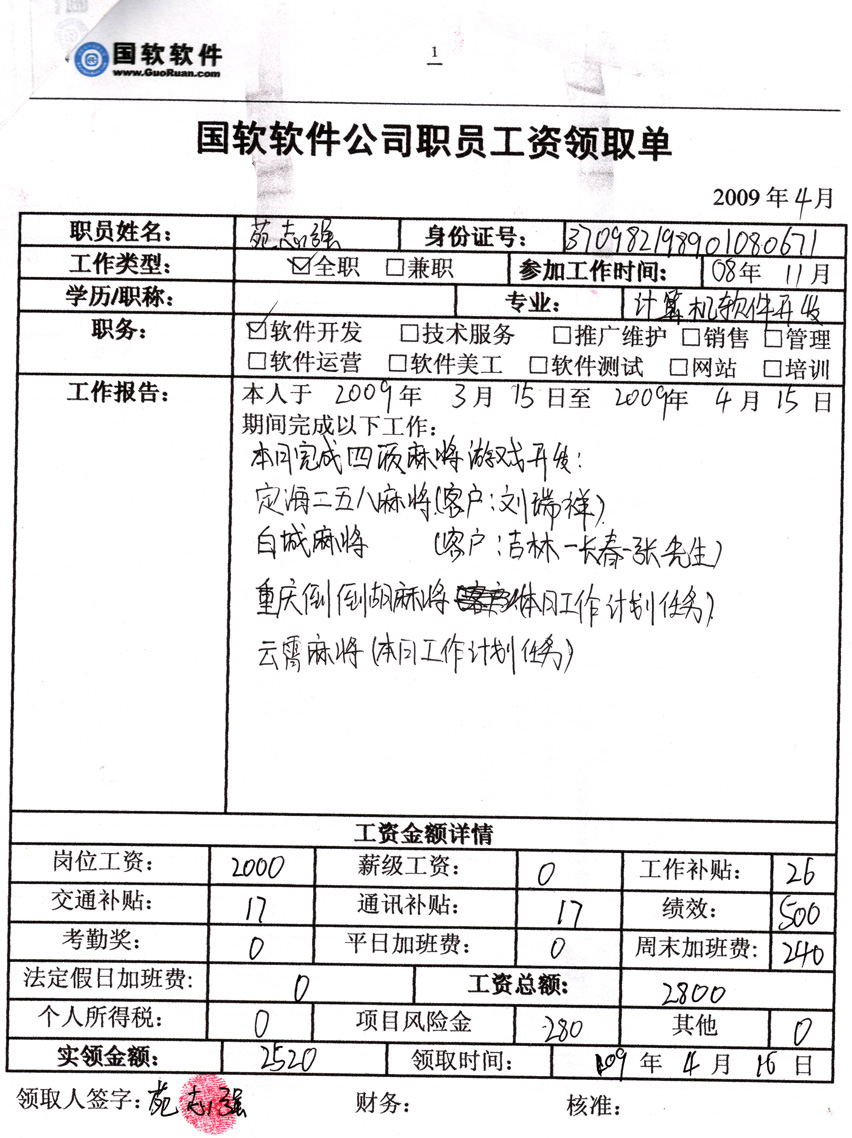 国软软件
www.GuoRuan.com
1
国软软件公司职员工资领取单
2009年4月
职员姓名： 苑志强 身份证号： 370982198901080671
工作类型： ☑全职 □兼职 参加工作时间： 08年 11月
学历/职称： 专业： 计算机软件开发
职务： ☑软件开发 □技术服务 □推广维护 □销售 □管理
□软件运营 □软件美工 □软件测试 □网站 □培训
工作报告： 本人于 2009年 3月 15日至 2009年 4月 15日
期间完成以下工作：
本月完成四项麻将游戏开发：
定海二五八麻将(客户：刘瑞祥)
白城麻将 (客户：吉林-长春-张先生)
重庆倒倒胡麻将(本月工作计划任务)
云霄麻将(本月工作计划任务)
工资金额详情
岗位工资： 2000 薪级工资： 0 工作补贴： 26
交通补贴： 17 通讯补贴： 17 绩效： 500
考勤奖： 0 平日加班费： 0 周末加班费: 240
法定假日加班费: 0 工资总额： 2800
个人所得税： 0 项目风险金 -280 其他 0
实领金额： 2520 领取时间： 09年 4月 16日
领取人签字: 苑志强 财务： 核准：